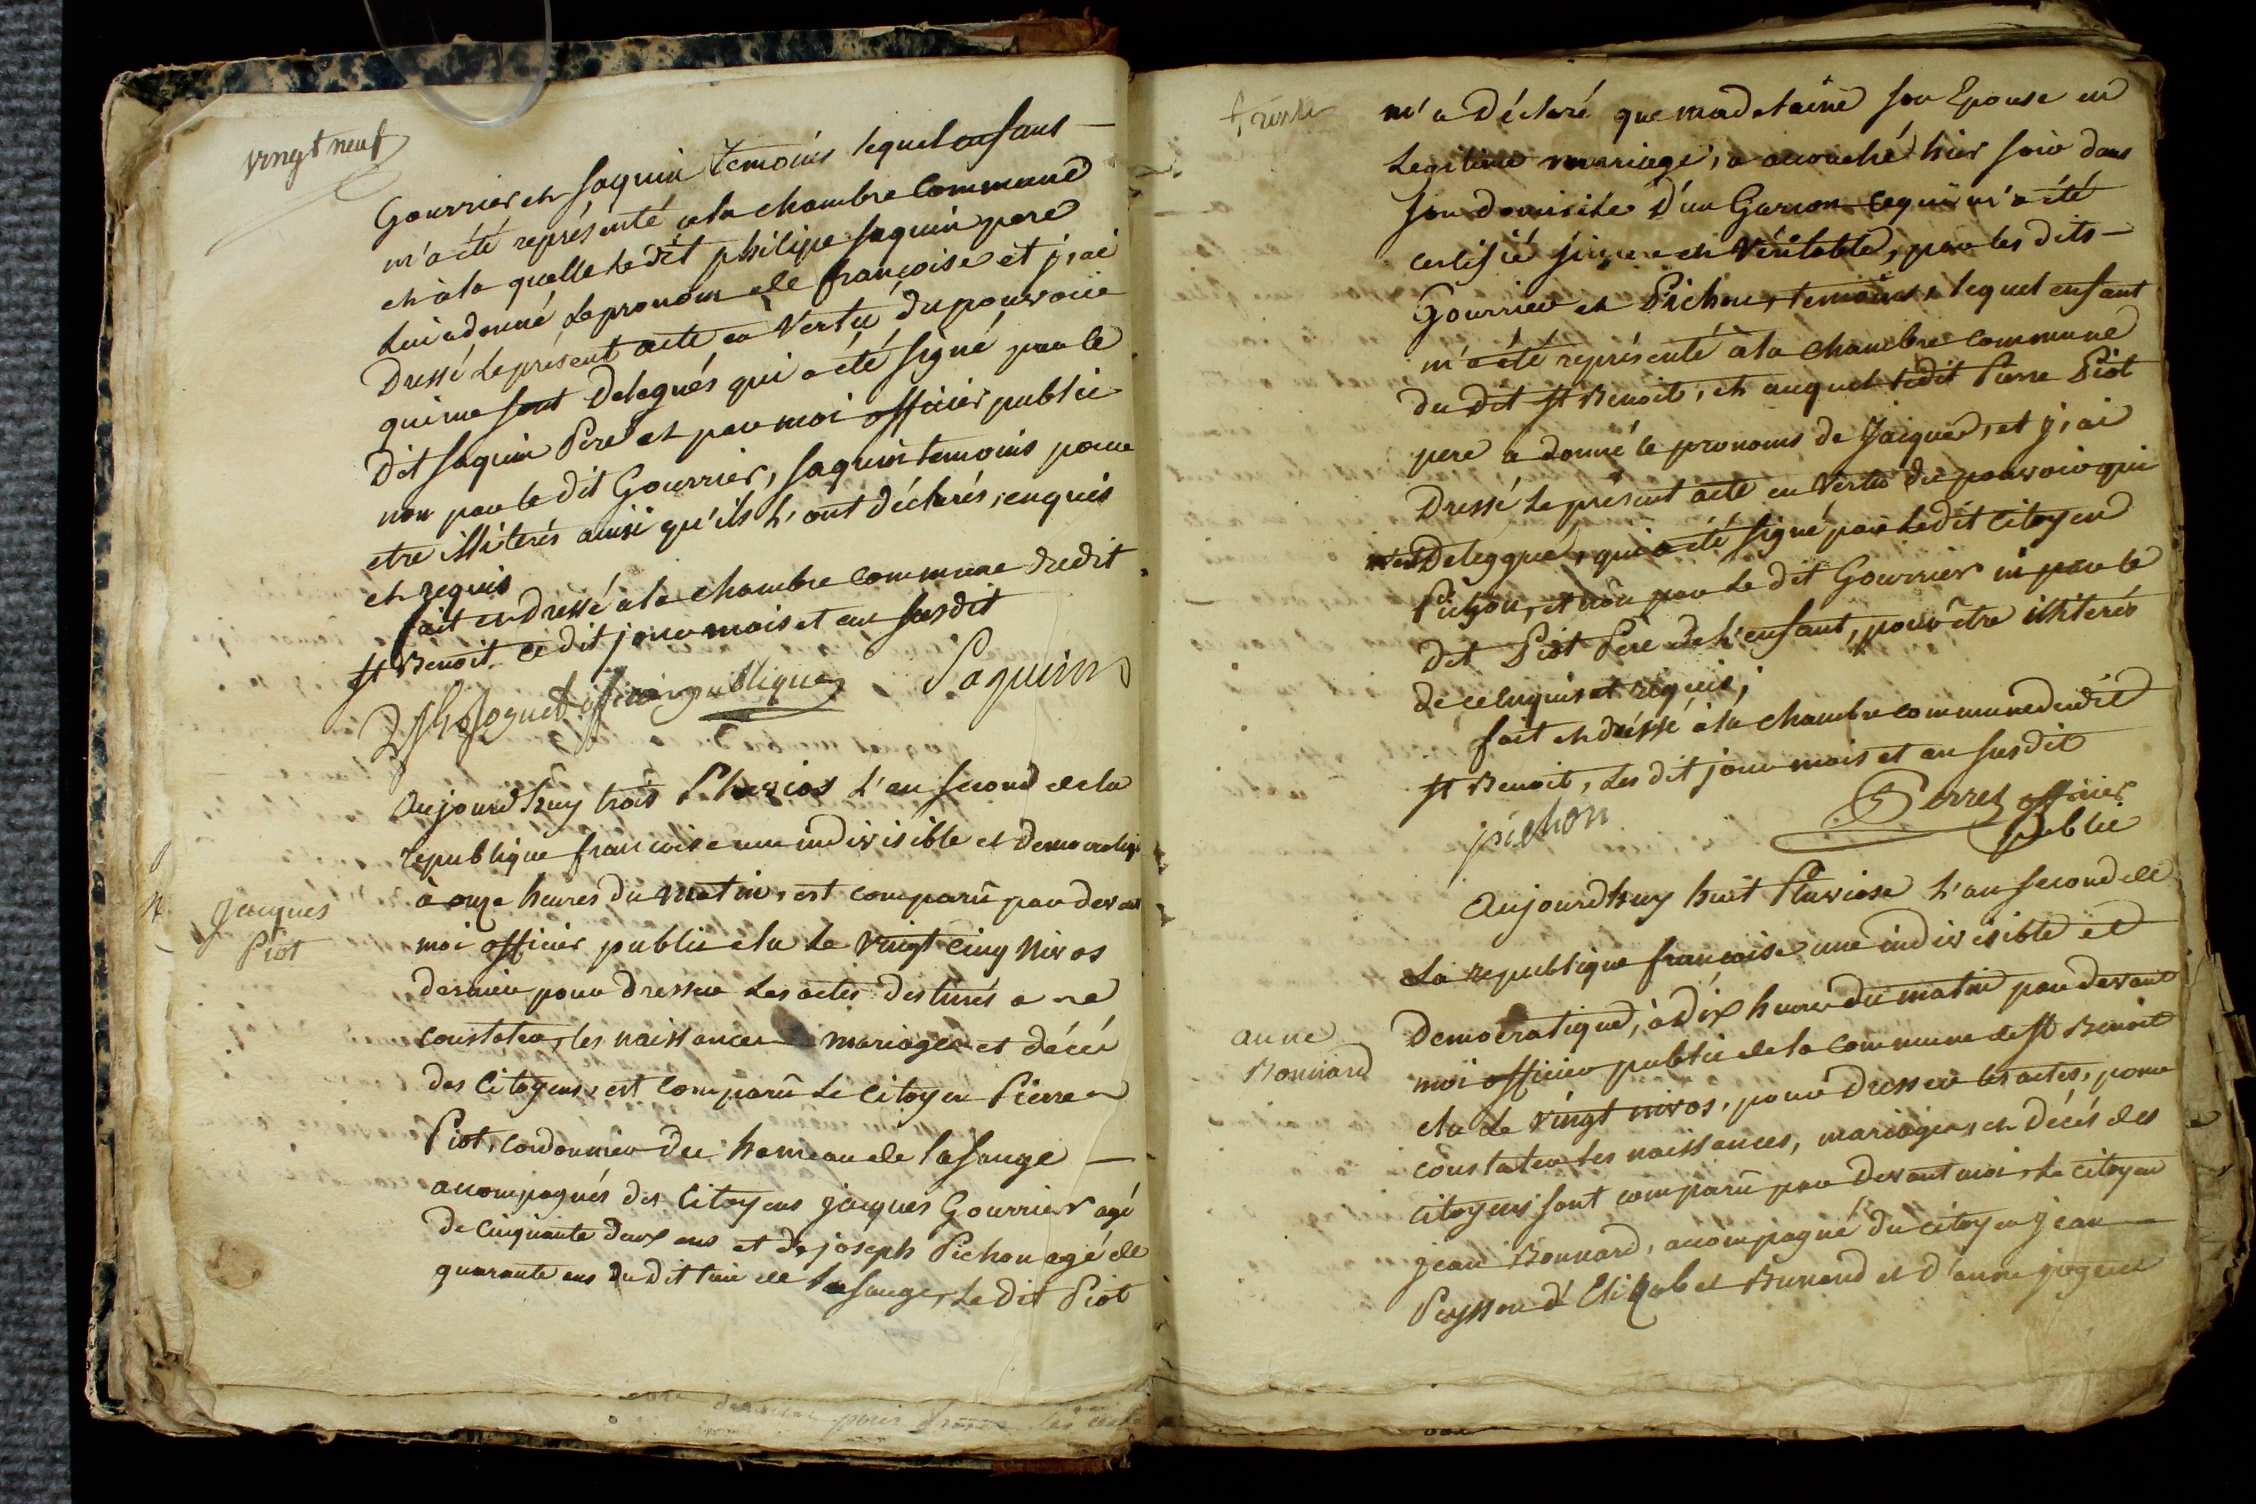 vingt neuf
Gourrier et saquin temoins lequel enfans
m'a été représenté a la chambre commune
et a la quelle le dit philipe saquin pere
lui a donné le pronom de françoise et j'ai
Dressé le présent acte en vertu du pouvoir
qui me sont Delegués qui a été signé par le
Dit saquin Pere et par moi officier public
non par le dit Gourrier, saquin temoins pour
etre illiterés ainsi qu'ils l'ont déclarés, enquis
et requis
fait et Dressé a la chambre commune dudit
st Benoit ce dit jour mois et an susdit
publique Saquin
Aujourd'huy trois Pluvios l'an second de la
republique francoise une indivisible et Democratiq
à onze heures du matin, est comparû par devant
moi officier public elu le vingt cinq Nivos
Jacques
Piot
dernier pour dresser les actes destinés a
constater les naissances mariages et décés
des Citoyens, est comparû le citoyen Pierre
Piot, cordonnier du hameau de lasauge
acompagnés des Citoyens jacques Gourrier agé
de Cinquante deux ans et de joseph Pichon agé de
quarante ans du dit lieu de lasauge, le dit Piot
trente
m'a Déclaré que madelaine son Epouse en
Legitime mariage, a acouché hier soir dans
son domicile D'un Garson ce qui m'a été
certifié sincere et Véritable, par les dits
Gourrier et Pichon, temoins, lequel enfant
m'a été représenté a la chambre commune
du dit st Benoit, et auquel ledit Pierre Piot
pere a donné le pronoms de Jacques, et j'ai
Dressé le présent acte en vertu du pouvoir qui
m'est Deleggué, qui a été signé par le dit citoyen
Pichon, et non par le dit Gourrier ni par le
dit Piot Pere de l'enfant, pour être illiterés
de ce enquis et requis;
fait et dréssé à la chambre commune dudit
st Benoit, les dit jour mois et an susdit
pichon Perret officier
public
Aujourdhuy huit Pluviose l'an second de
La republique francoise une indivisible et
Democratique, à dix heures du matin par devant
anne
Bonnard
moi officier public de la commune de st Benoit
elu le vingt nivos, pour dresser les actes, pour
constater les naissances, mariages, et Décés des
citoyens sont comparû par devant moi le citoyen
jean Bonnard, acompagné du citoyen jean
Peysson d'Elizabet Bunard et d'anne